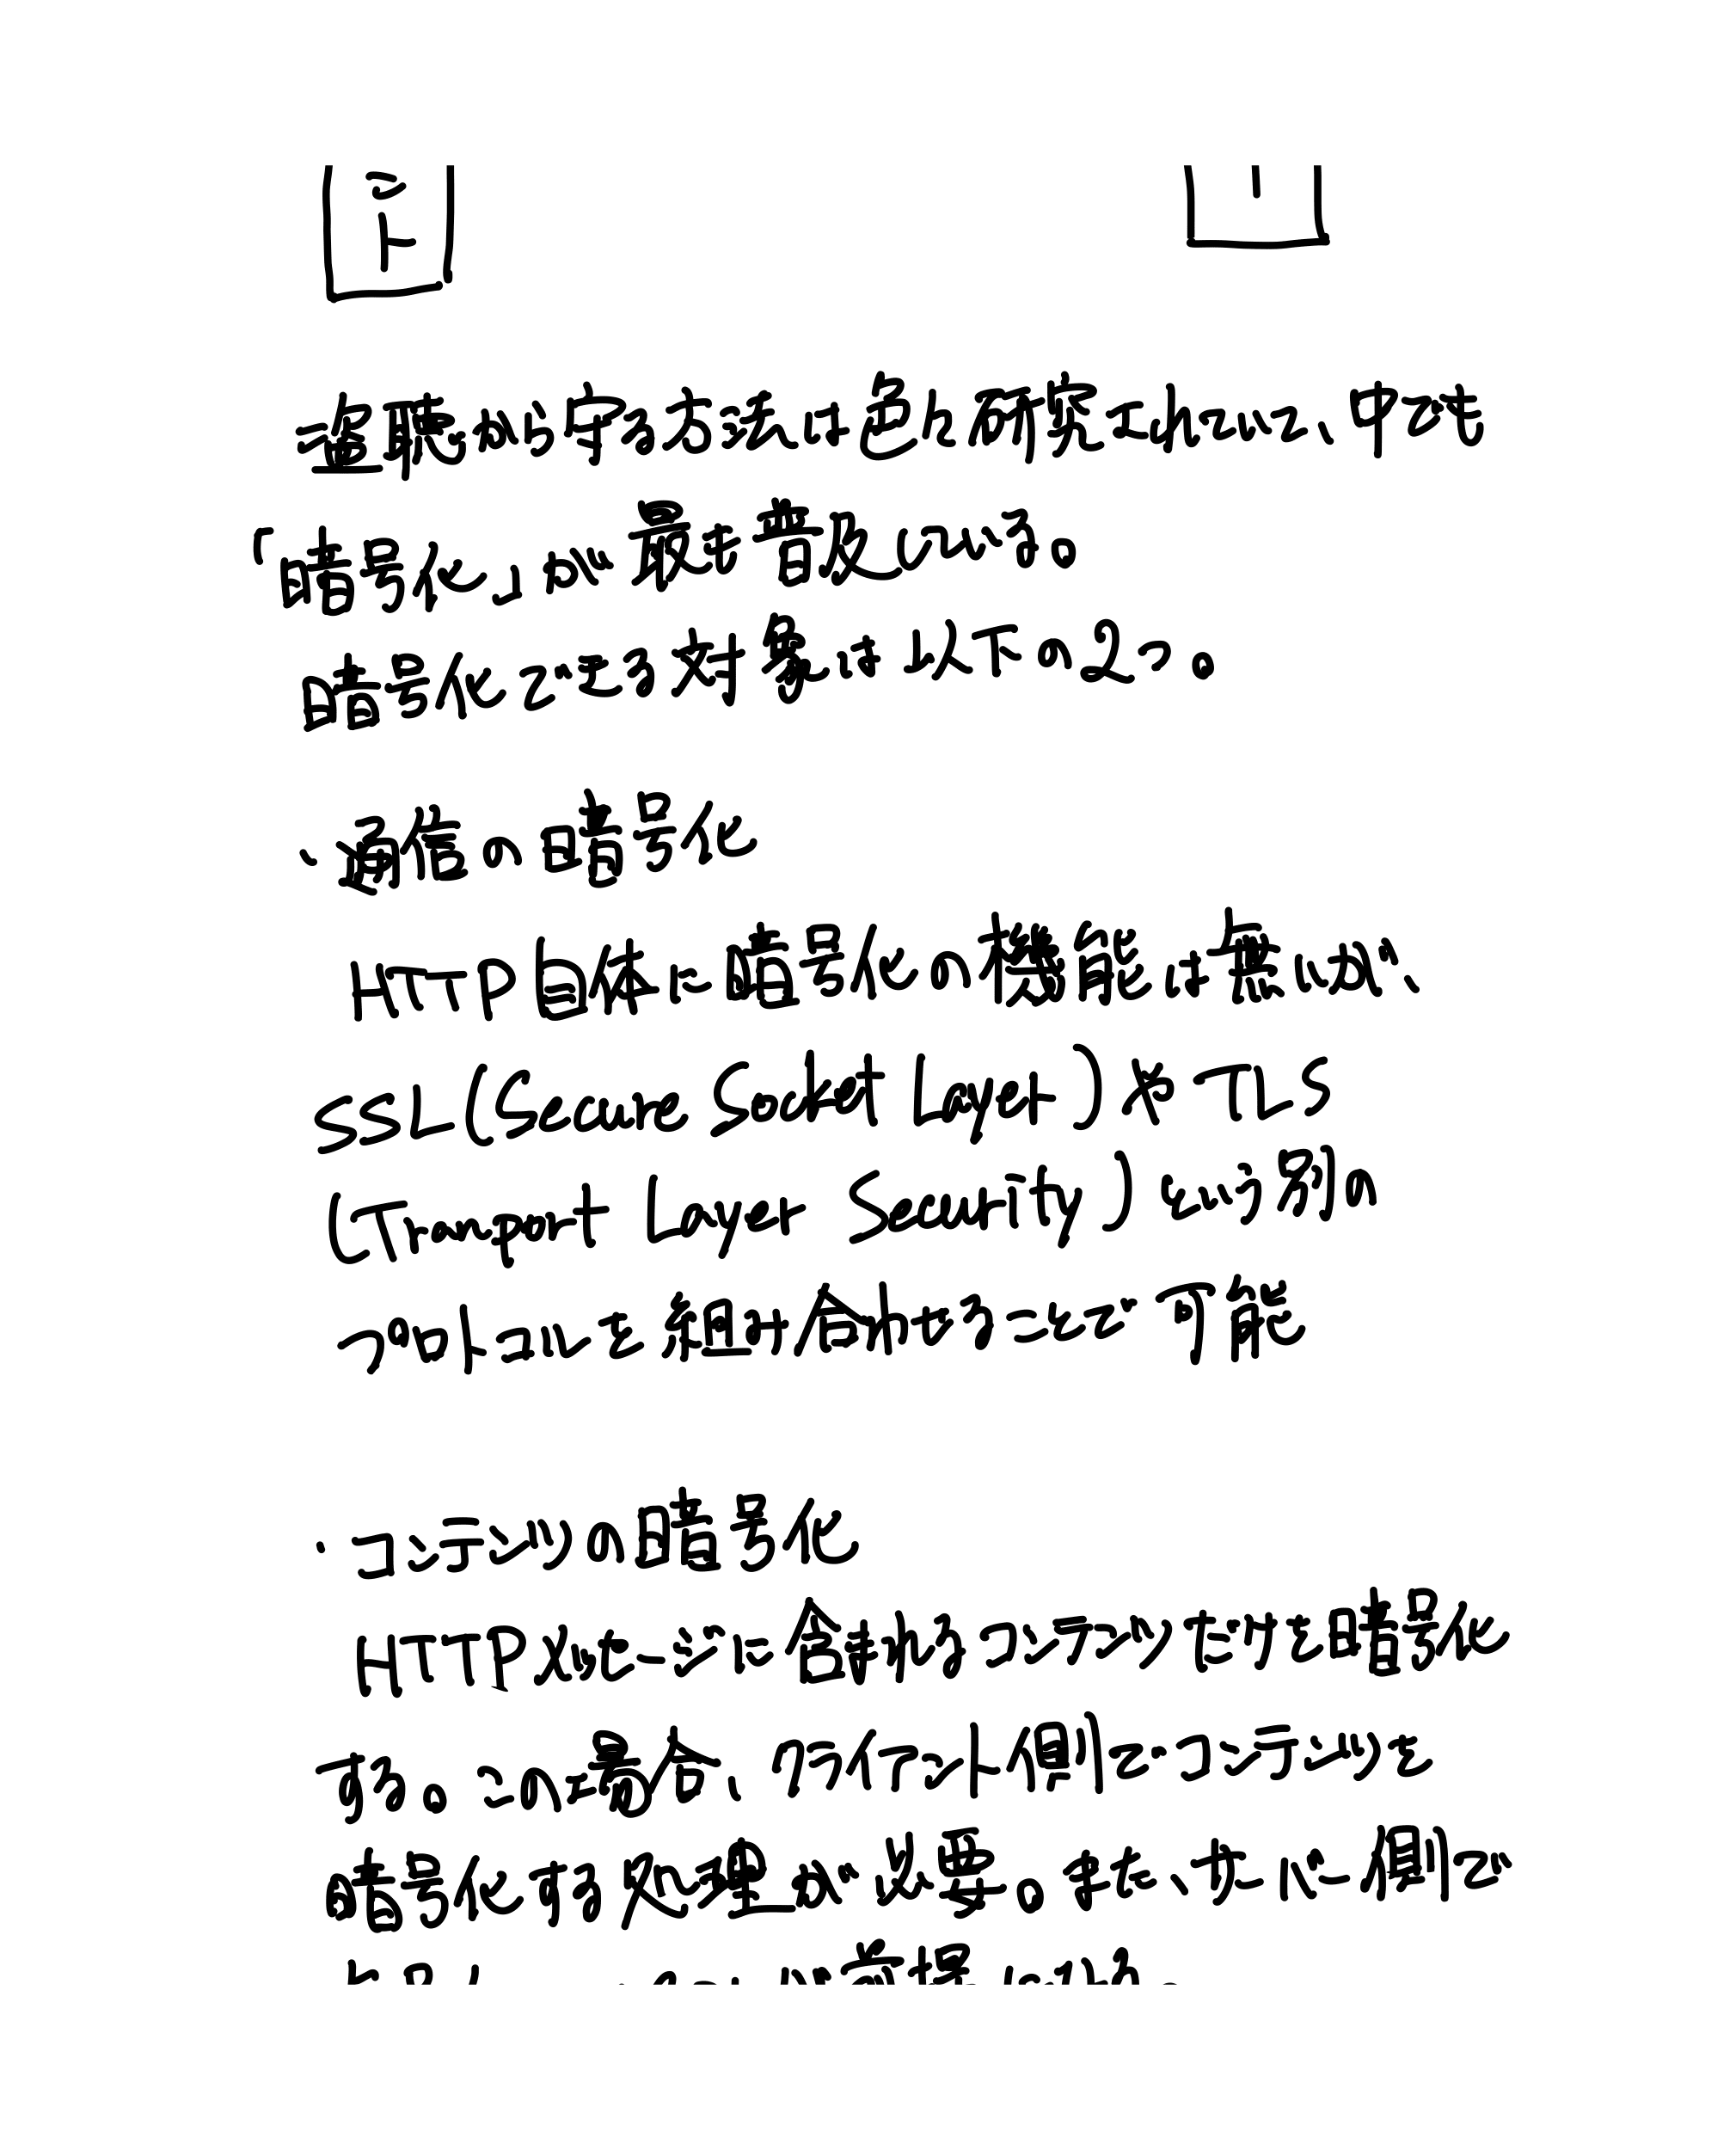 ント
盗聴から守る方法は色々研究されていて、中でも
「暗号化」が最も普及している。
暗号化できる対象は以下の2つ。
・通信の暗号化
HTTP自体に暗号化の機能は無いが、
SSL(Secure Socket Layer)やTLS
(Transport Layer Security)という別の
プロトコルを組み合わせることで可能
・コンテンツの暗号化
HTTPメッセージに含まれるコンテンツだけを暗号化
する。この場合、クライアント側でコンテンツを
暗号化する処理が必要。また、サーバー側で